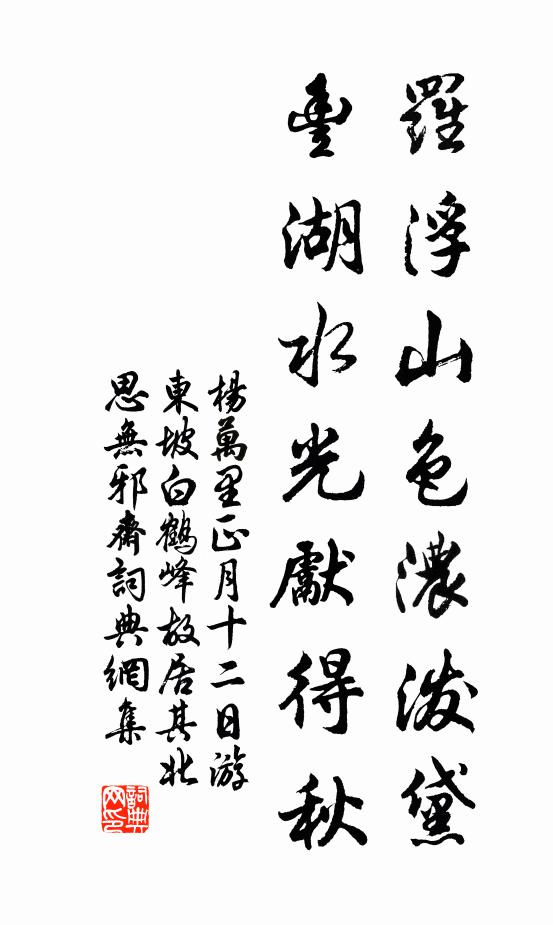 羅浮山色濃潑黛
豐湖水光獻得秋
楊萬里正月十二日游
東坡白鶴峰故居其北
思無邪齋詞典網集
詞典网印